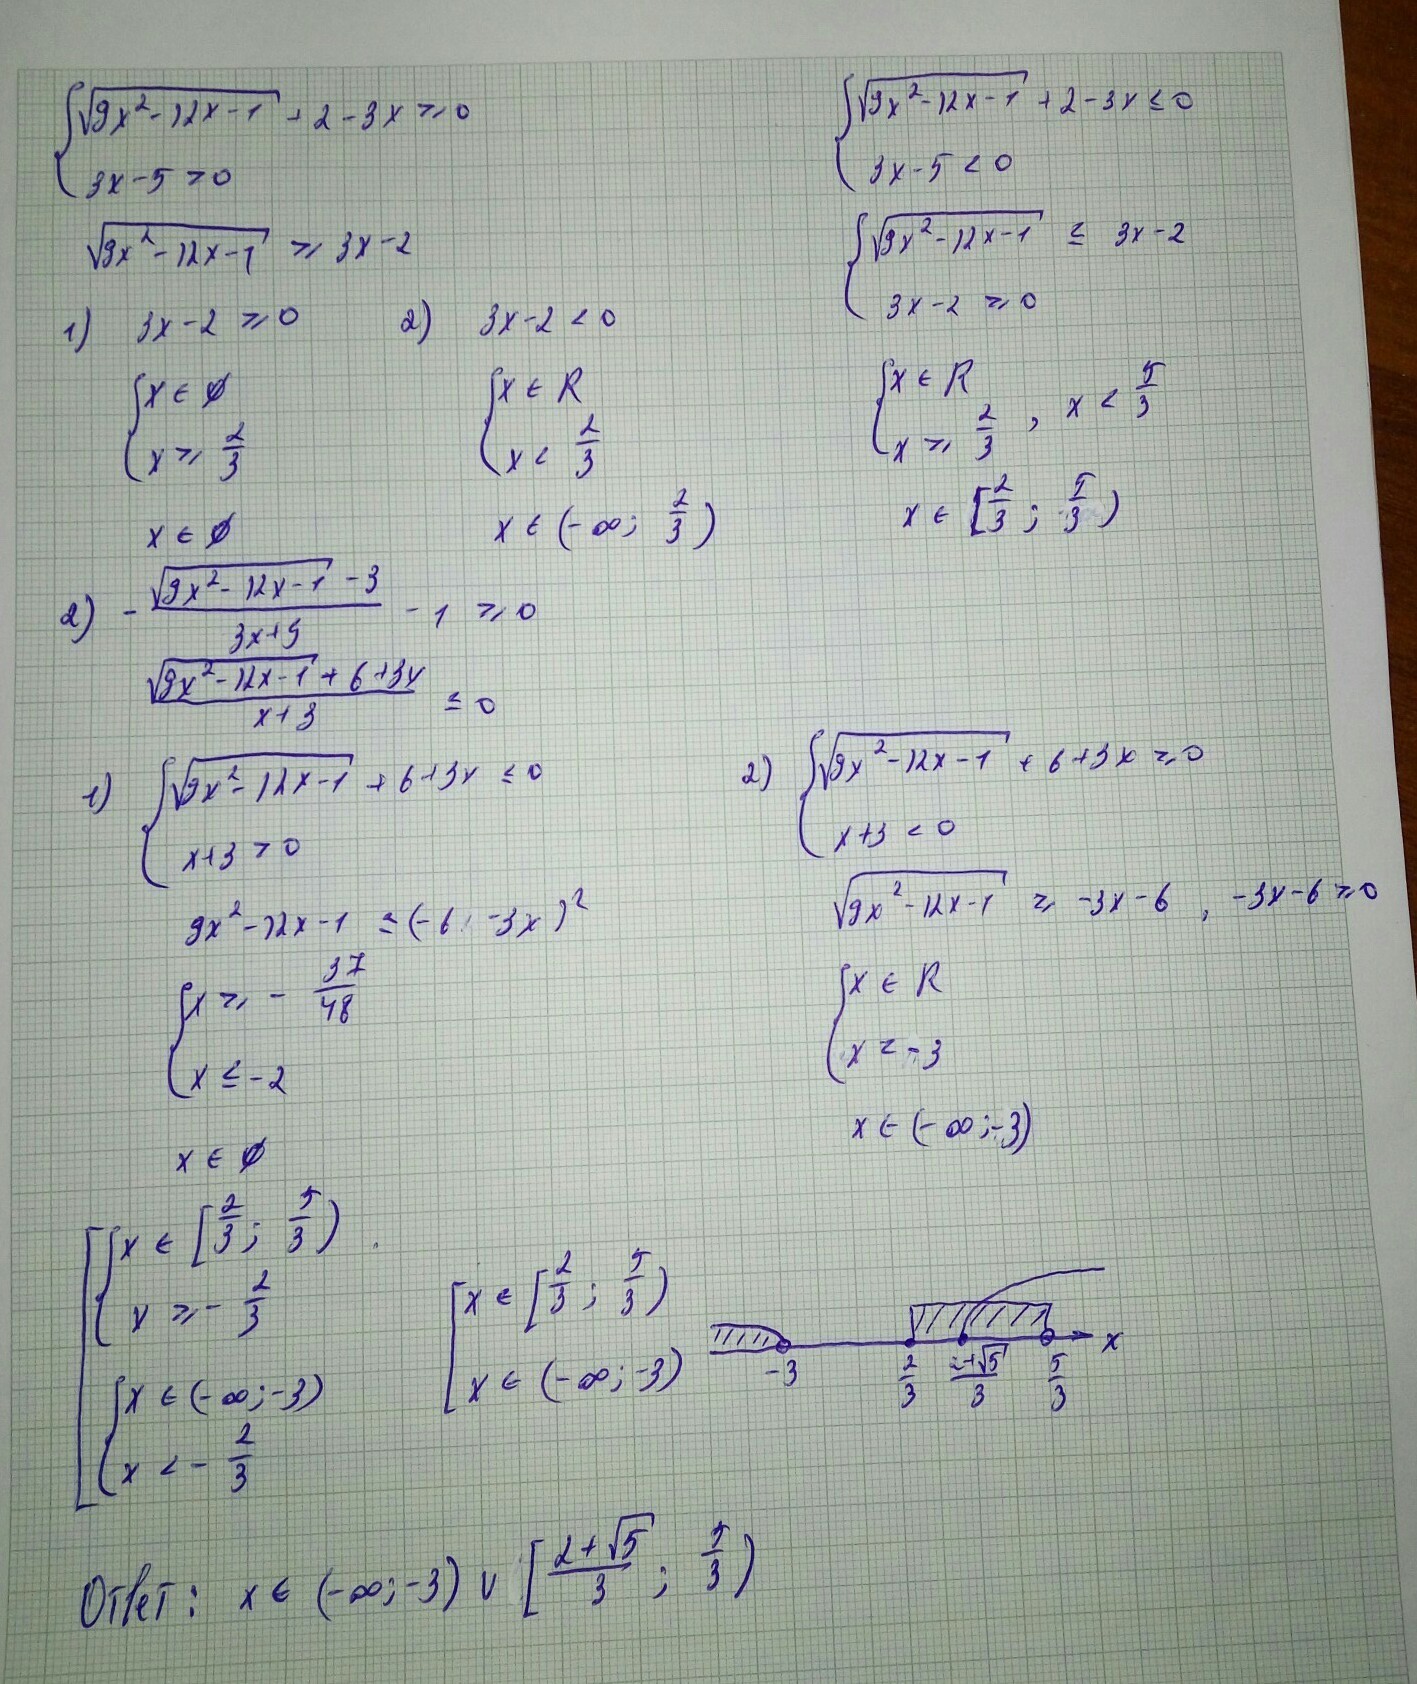 {√(9x² - 12x - 1) + 2 - 3x ≥ 0
3x - 5 > 0
√(9x² - 12x - 1) ≥ 3x - 2
1) 3x - 2 ≥ 0
{x ∈ ∅
x ≥ 2/3
x ∈ ∅
2) 3x - 2 < 0
{x ∈ R
x < 2/3
x ∈ (-∞; 2/3)
{√(9x² - 12x - 1) + 2 - 3x ≤ 0
3x - 5 < 0
{√(9x² - 12x - 1) ≤ 3x - 2
3x - 2 ≥ 0
{x ∈ R
x ≥ 2/3 , x < 5/3
x ∈ [2/3; 5/3)
2) - (√(9x² - 12x - 1) - 3)/(3x + 9) - 1 ≥ 0
(√(9x² - 12x - 1) + 6 + 3x)/(x + 3) ≤ 0
1) {√(9x² - 12x - 1) + 6 + 3x ≤ 0
x + 3 > 0
9x² - 12x - 1 ≤ (-6 - 3x)²
{x ≥ - 37/48
x ≤ -2
x ∈ ∅
2) {√(9x² - 12x - 1) + 6 + 3x ≥ 0
x + 3 < 0
√(9x² - 12x - 1) ≥ -3x - 6 , -3x - 6 ≥ 0
{x ∈ R
x < -3
x ∈ (-∞; -3)
[{x ∈ [2/3; 5/3)
x ≥ - 2/3
{x ∈ (-∞; -3)
x < - 2/3
[x ∈ [2/3; 5/3)
x ∈ (-∞; -3)
-3 2/3 (2+√5)/3 5/3 x
Ответ: x ∈ (-∞; -3) ∪ [(2+√5)/3; 5/3)